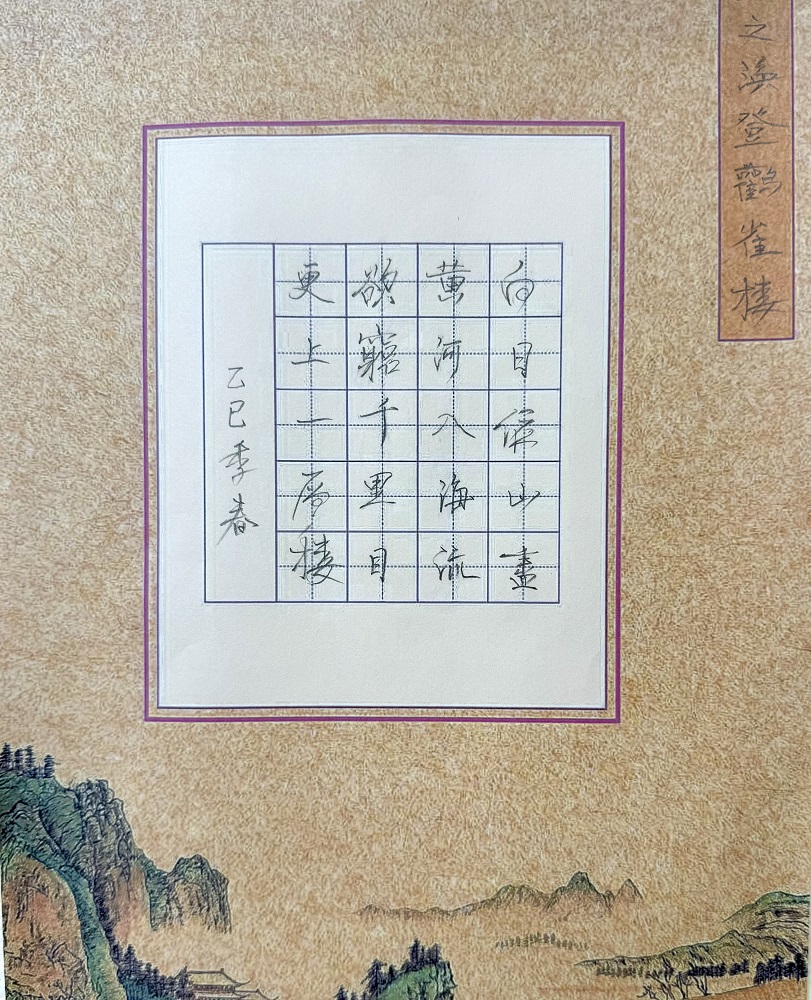 之渙登鸛雀楼
白日依山盡
黄河入海流
欲窮千里目
更上一層楼
乙巳季春